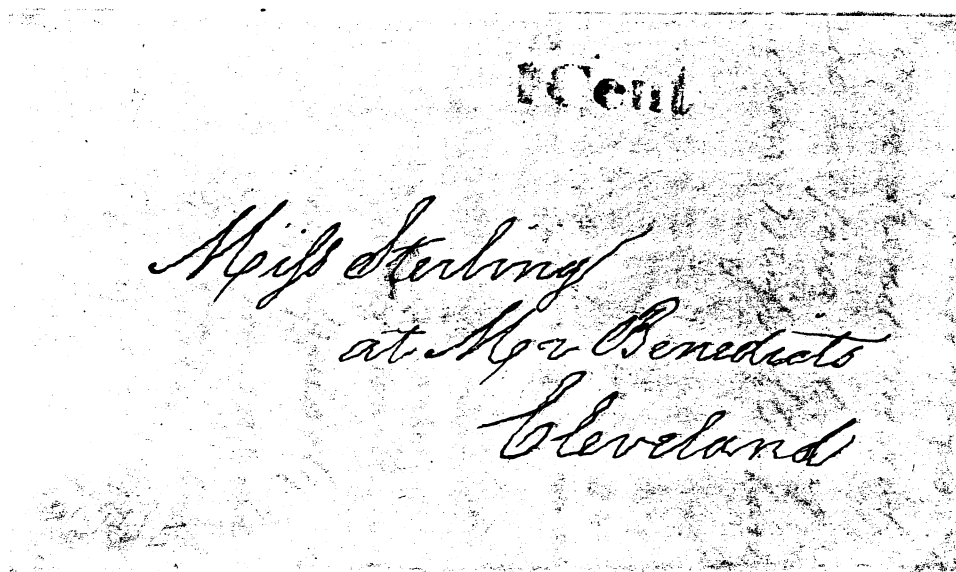 1 Cent
Miſs Sterling
at Mr Benedicts
Cleveland